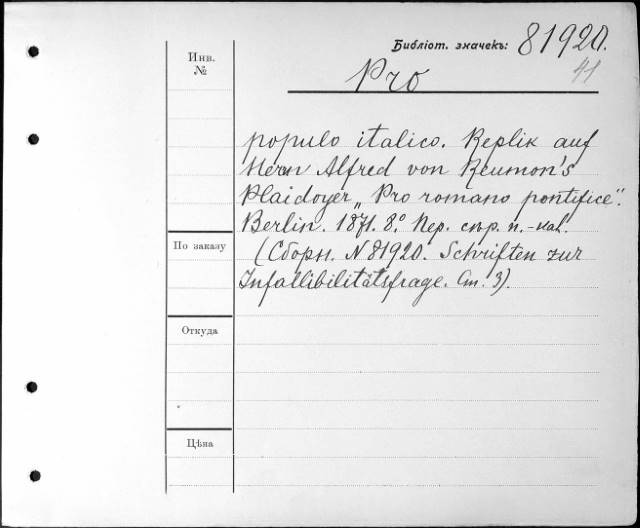 Библіот. значекъ: 81920.
41
Инв.
№
Pro
populo italico. Replik auf
Herrn Alfred von Reumon's
Plaidoyer „Pro romano pontifice".
Berlin. 1871. 8.° Пер. сър. п.-кал.
По заказу
(Сборн. N 81920. Schriften zur
Infallibilitätsfrage. Ст. 3).
Откуда
Цѣна